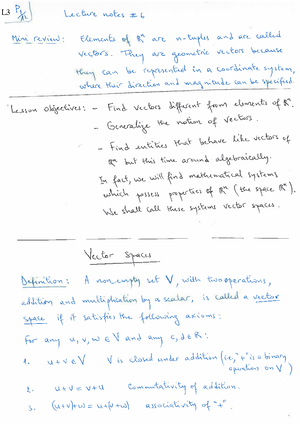 L3 P1/12 Lecture notes # 6
Mini review: Elements of ℝⁿ are n-tuples and are called
vectors. They are geometric vectors because
they can be represented in a coordinate system,
where their direction and magnitude can be specified.
Lesson objectives: - Find vectors different from elements of ℝⁿ.
- Generalize the notion of vectors.
- Find entities that behave like vectors of
ℝⁿ but this time around algebraically.
In fact, we will find mathematical systems
which possess properties of ℝⁿ (the space ℝⁿ).
We shall call these systems vector spaces.
Vector Spaces
Definition: A non empty set V, with two operations,
addition and multiplication by a scalar, is called a vector
space if it satisfies the following axioms:
For any u, v, w ∈ V and any c, d ∈ ℝ:
1. u + v ∈ V V is closed under addition (i.e., "+" is a binary
equation on V)
2. u + v = v + u Commutativity of addition.
3. (u+v)+w = u+(v+w) associativity of "+".